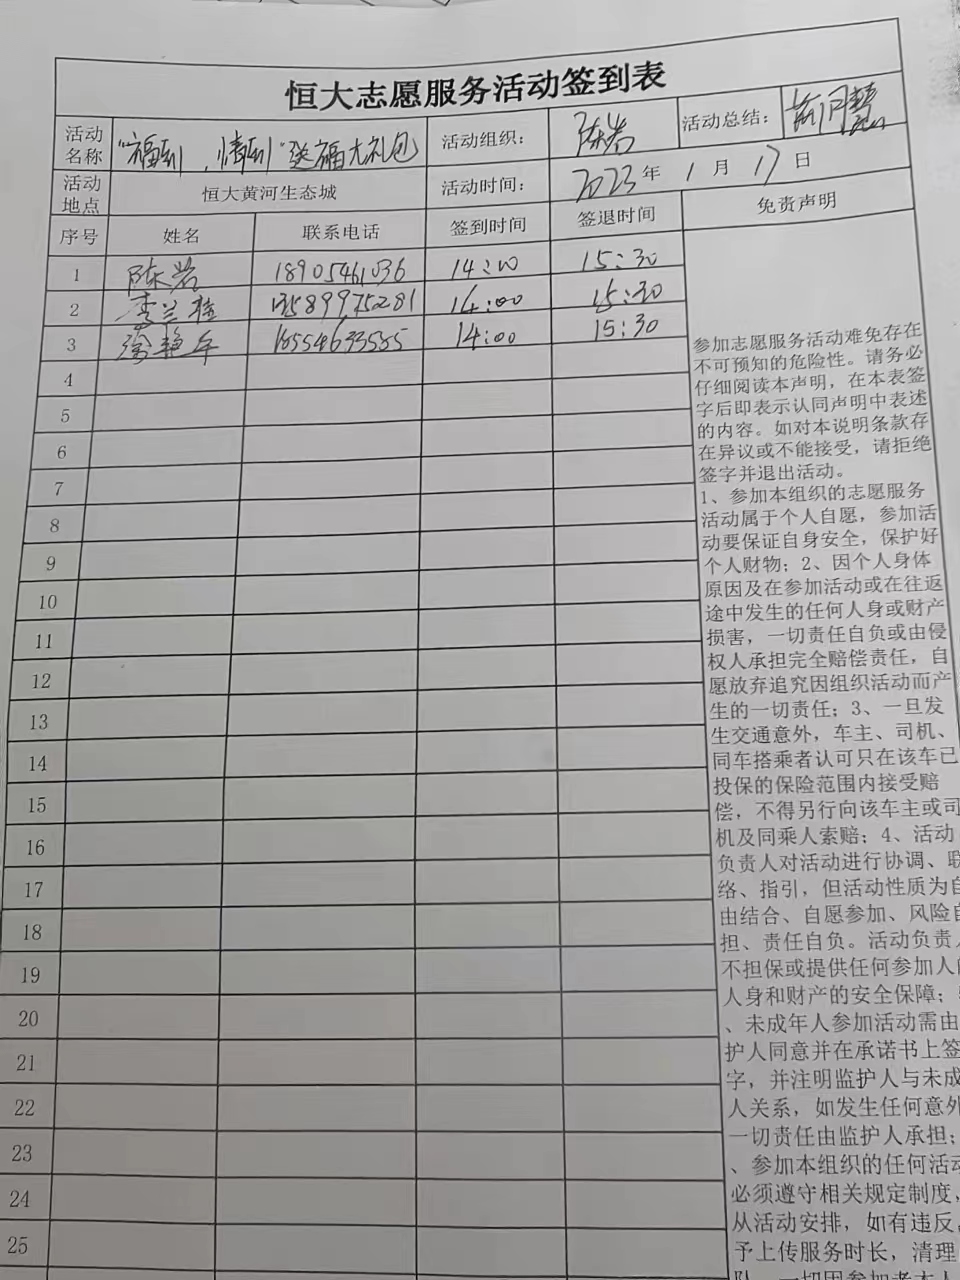 恒大志愿服务活动签到表
活动名称 "福到,情到"送福大礼包 活动组织: 陈岩 活动总结:
活动地点 恒大黄河生态城 活动时间: 2023年1月17日
序号 姓名 联系电话 签到时间 签退时间 免责声明
1 陈岩 18905461036 14:00 15:30
2 李兰桂 15899975281 14:00 15:30
3 徐艳年 18554633585 14:00 15:30
4
5
6
7
8
9
10
11
12
13
14
15
16
17
18
19
20
21
22
23
24
25
参加志愿服务活动难免存在
不可预知的危险性。请务必
仔细阅读本声明,在本表签
字后即表示认同声明中表述
的内容。如对本说明条款存
在异议或不能接受,请拒绝
签字并退出活动。
1、参加本组织的志愿服务
活动属于个人自愿,参加活
动要保证自身安全,保护好
个人财物;2、因个人身体
原因及在参加活动或在往返
途中发生的任何人身或财产
损害,一切责任自负或由侵
权人承担完全赔偿责任,自
愿放弃追究因组织活动而产
生的一切责任;3、一旦发
生交通意外,车主、司机、
同车搭乘者认可只在该车已
投保的保险范围内接受赔
偿,不得另行向该车主或司
机及同乘人索赔;4、活动
负责人对活动进行协调、联
络、指引,但活动性质为自
由结合、自愿参加、风险自
担、责任自负。活动负责人
不担保或提供任何参加人的
人身和财产的安全保障;
、未成年人参加活动需由
护人同意并在承诺书上签
字,并注明监护人与未成
人关系,如发生任何意外
一切责任由监护人承担;
、参加本组织的任何活动
必须遵守相关规定制度,
从活动安排,如有违反,
予上传服务时长,清理
队,一切因参加者本人